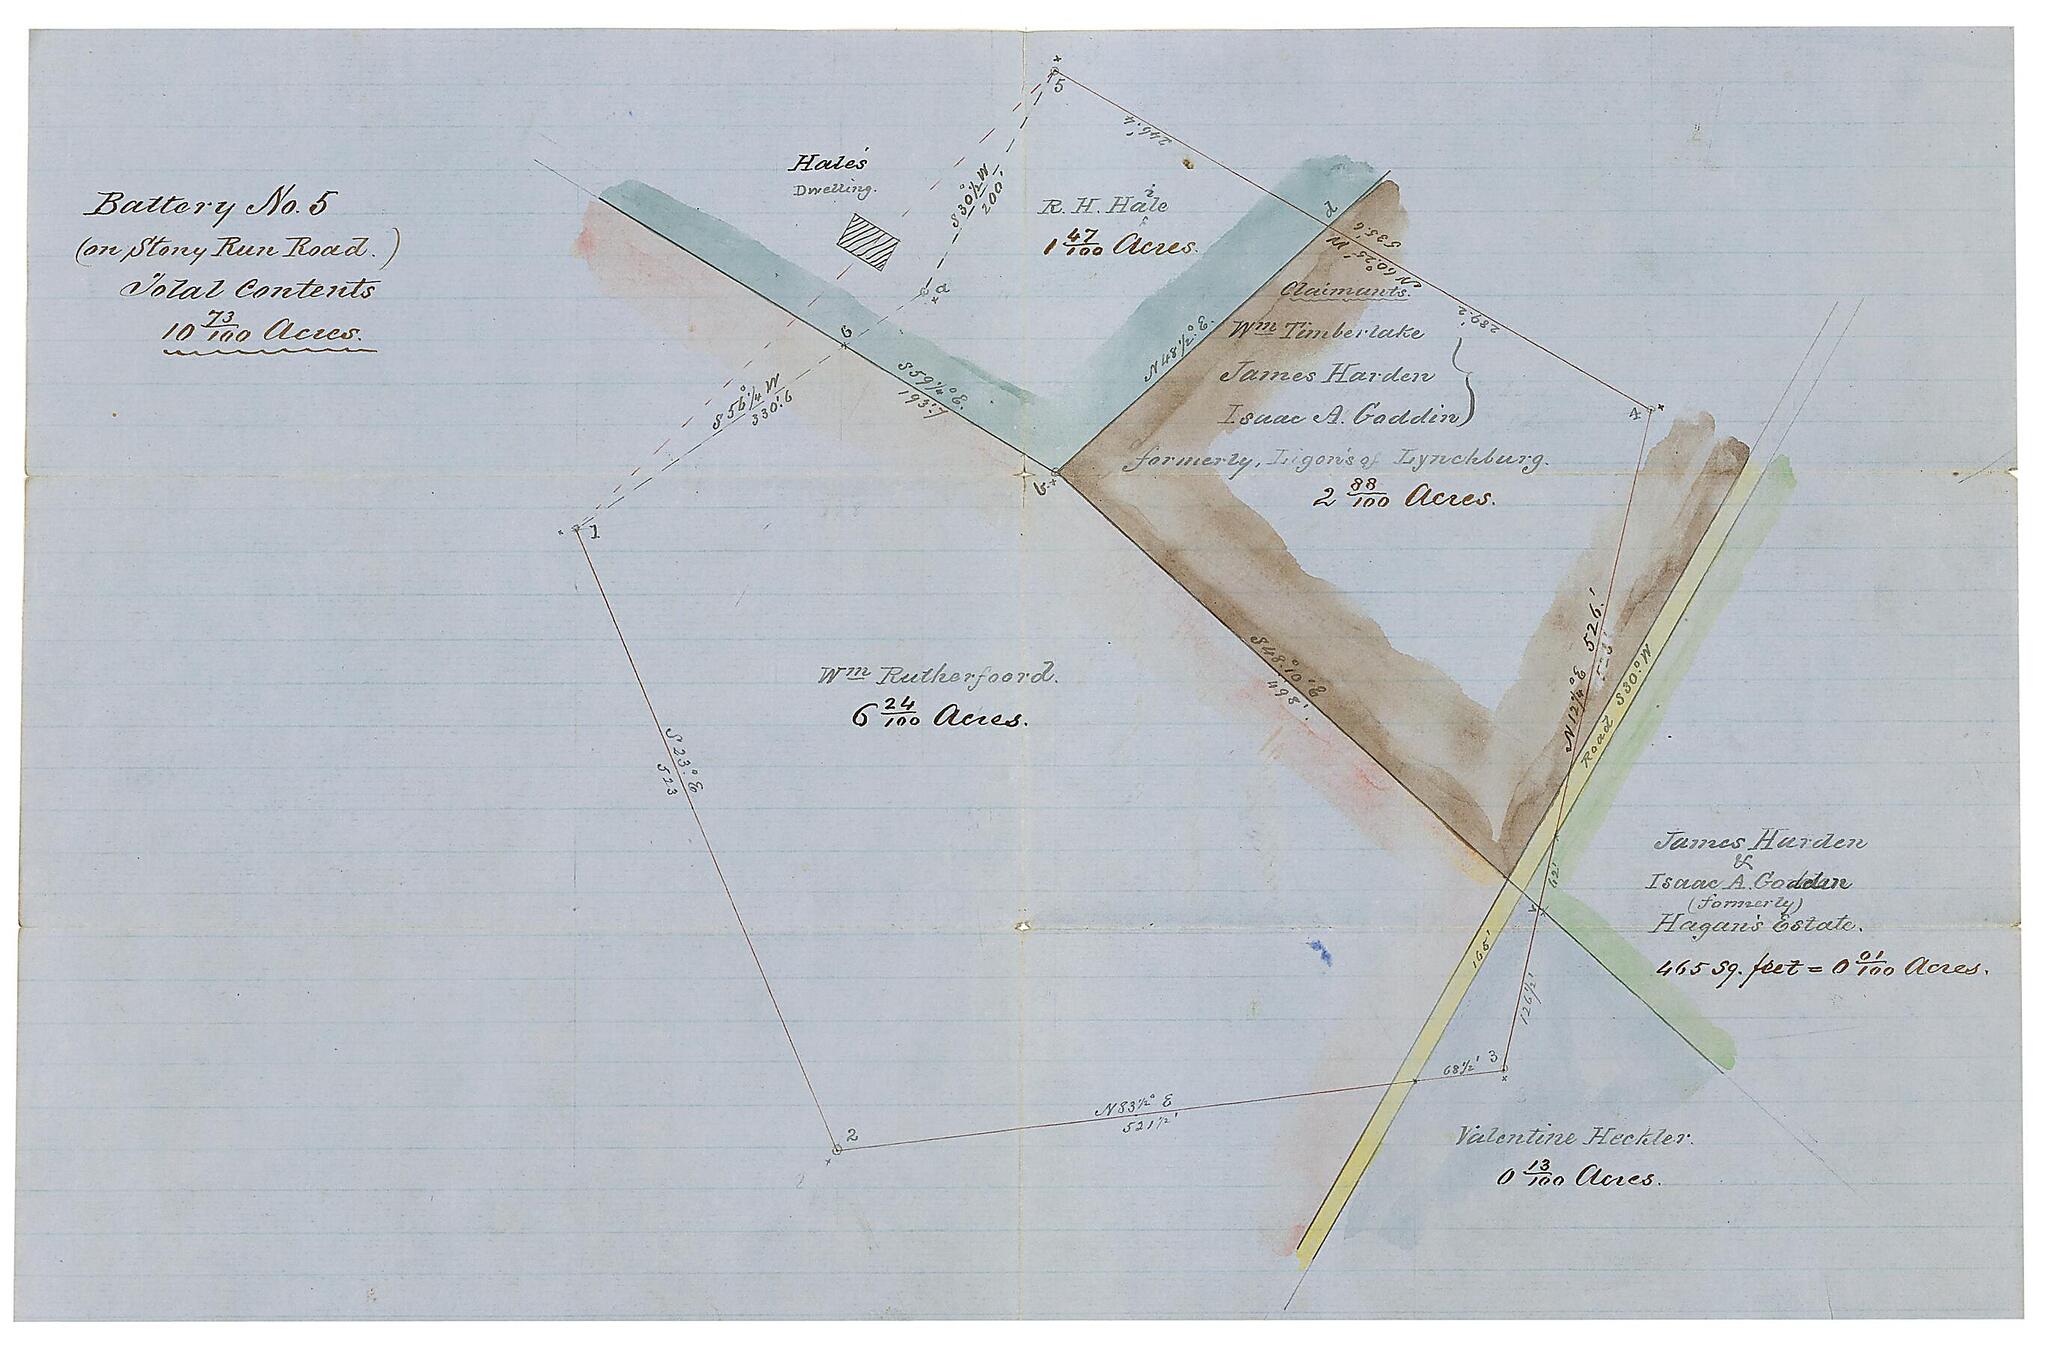 Battery No. 5
(on Stony Run Road.)
Total Contents
10 73/100 Acres.
Hale's
Dwelling.
5
246.4'
S 30 1/2° W
200'
a
R. H. Hale
1 47/100 Acres.
d
535.6'
N 60.25° W
289.2'
4
Claimants.
Wm Timberlake
James Harden
Isaac A. Goddin
formerly, Ligon's of Lynchburg.
2 88/100 Acres.
N 48 1/2° E.
6
S 59 1/4° E.
193.7
S 56 1/4 W
330.6
b
1
S 48°.01' E
498'.
526.'
N 12 1/4° E
Road S 30°. W
Wm Rutherfoord.
6 24/100 Acres.
S 23° E
523
James Harden
&
Isaac A. Goddin
(formerly)
Hagan's Estate.
465 Sq. feet = 0 01/100 Acres.
62'
165'
126 1/2'
3
68 1/2'
N 83 1/2° E
521 1/2'
2
Valentine Heckler.
0 13/100 Acres.